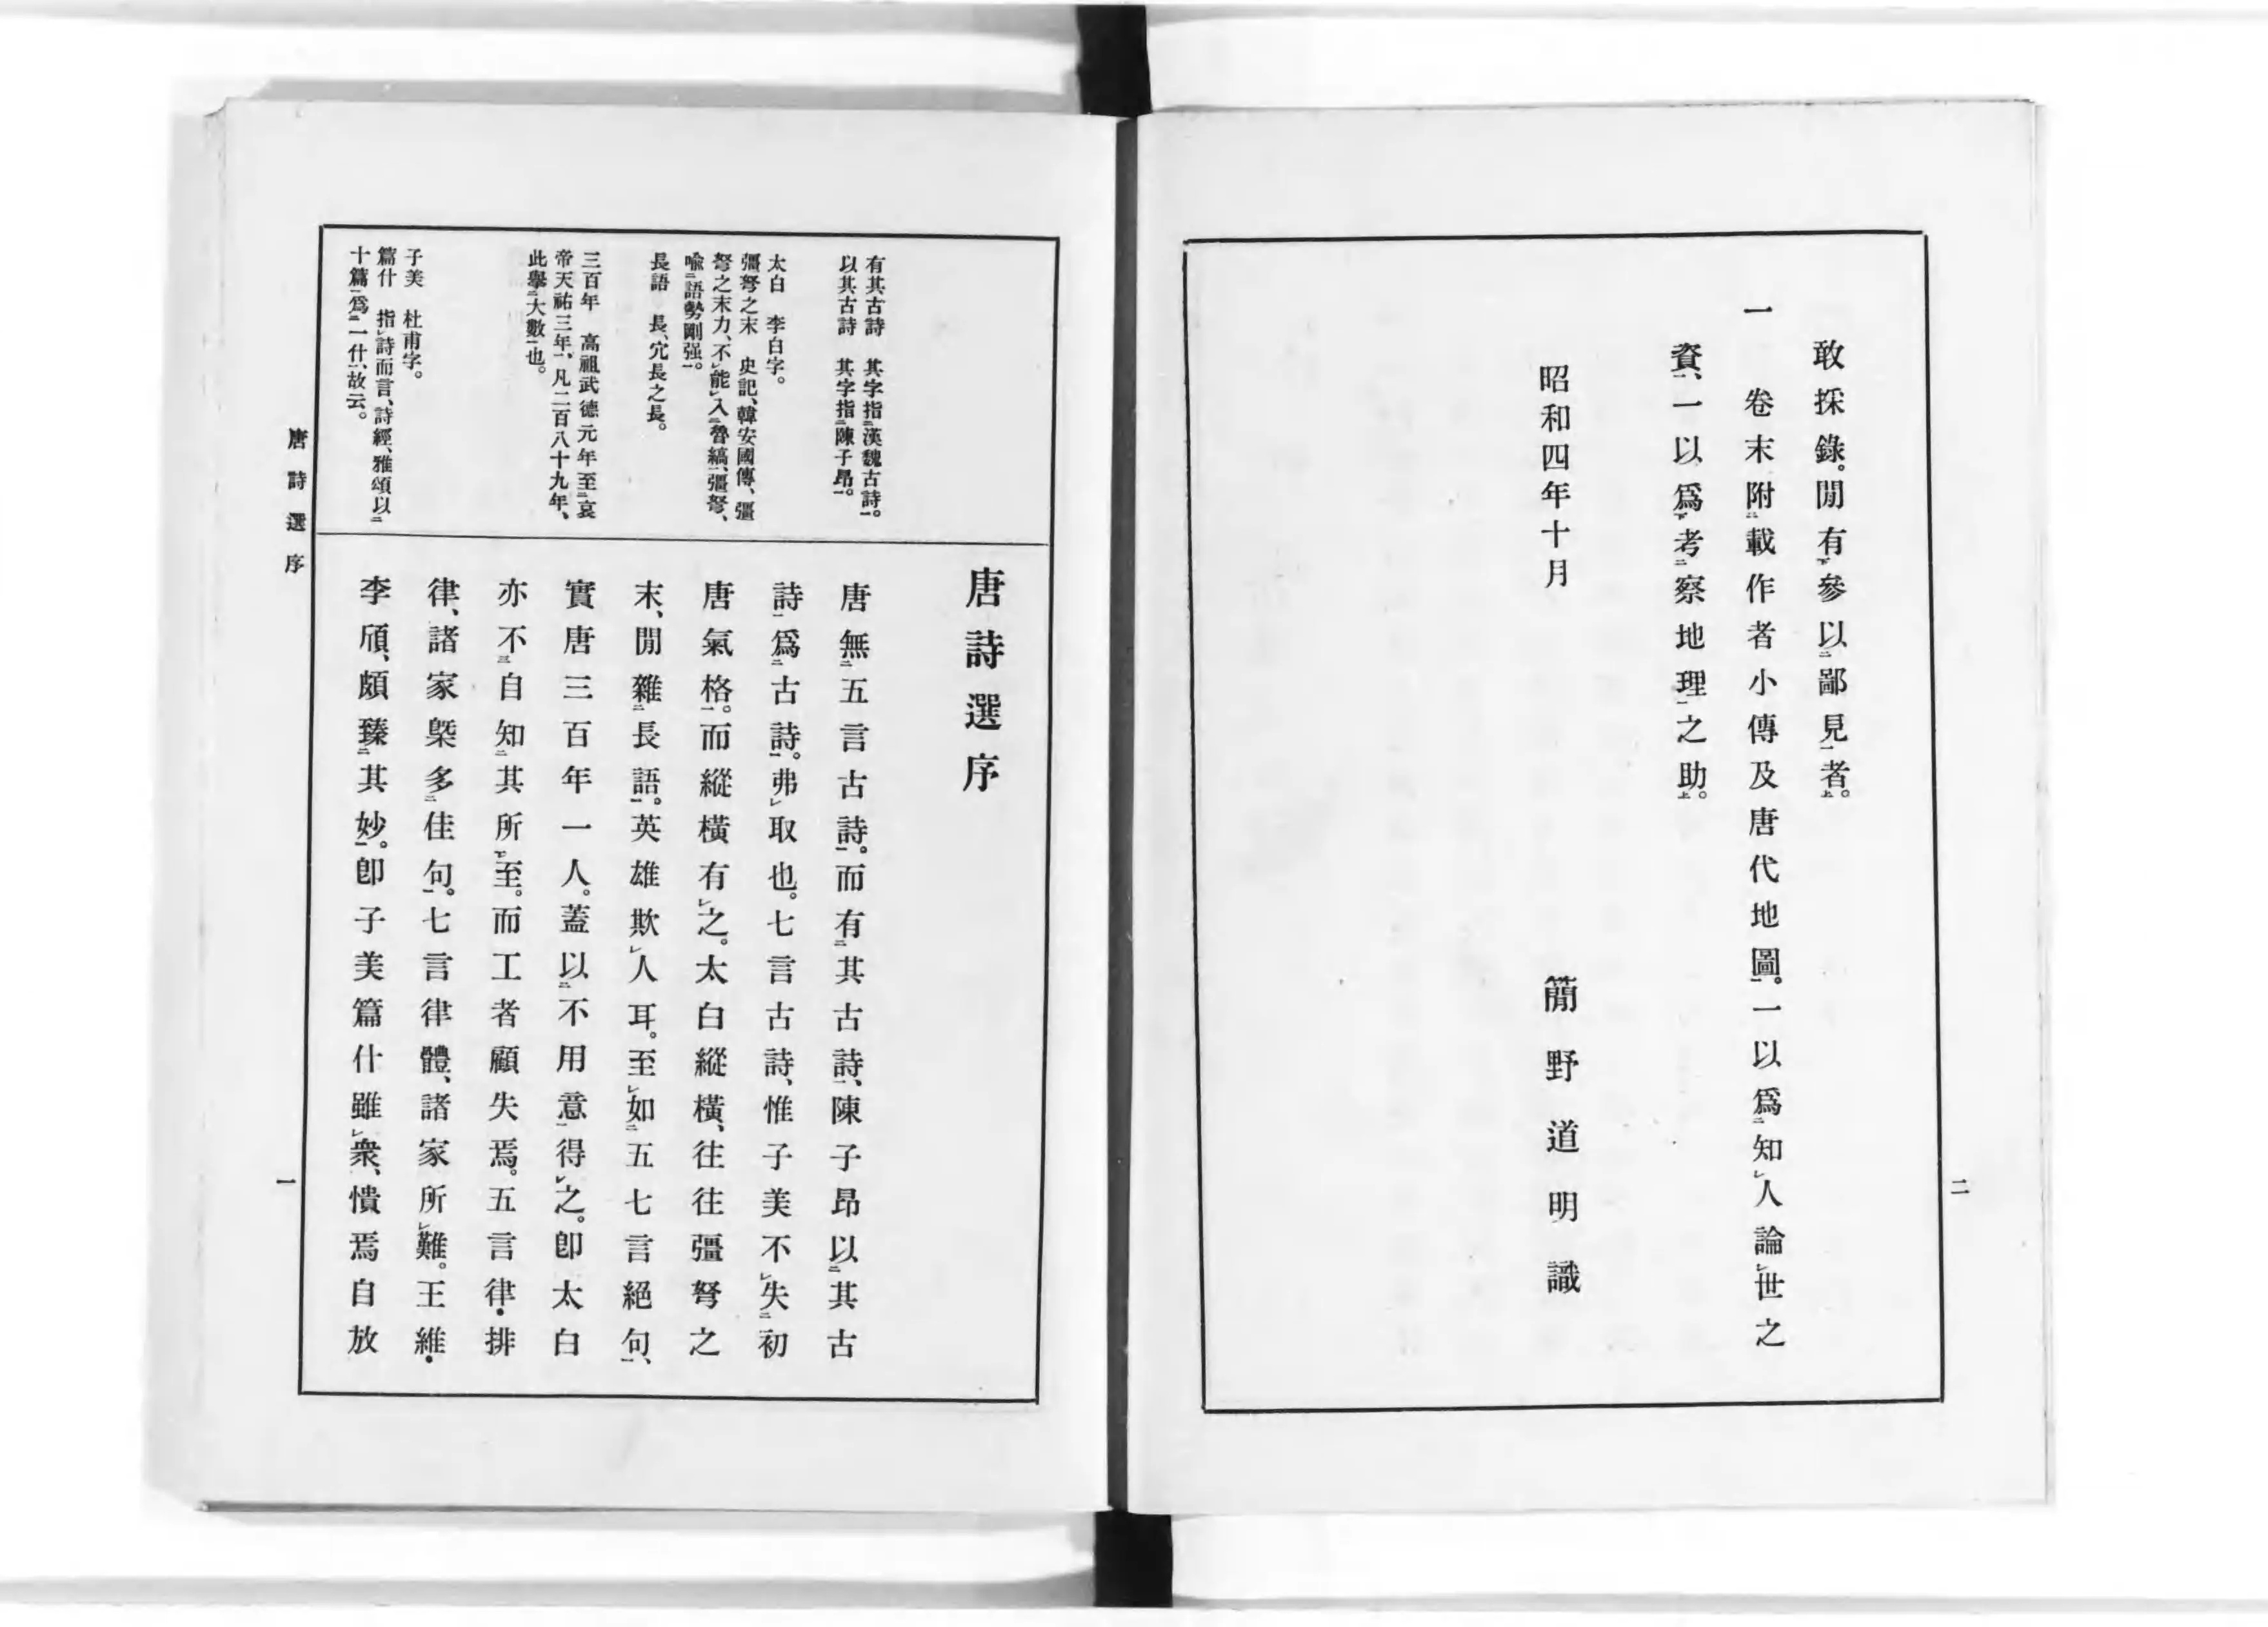 敢採錄。閒有下參以二鄙見一者上。
一　卷末附二載作者小傳及唐代地圖一。一以爲二知レ人論レ世之
資一、一以爲下考二察地理一之助上。
昭和四年十月
簡野道明識
二
唐詩選序
唐無二五言古詩一。而有二其古詩一、陳子昂以二其古
詩一爲二古詩一。弗レ取也。七言古詩、惟子美不レ失二初
唐氣格一。而縱橫有レ之。太白縱橫、往往彊弩之
末、閒雜二長語一。英雄欺レ人耳。至レ如二五七言絕句一、
實唐三百年一人。蓋以二不用意一得レ之。卽太白
亦不三自知二其所一レ至。而工者顧失焉。五言律・排
律、諸家槩多二佳句一。七言律體、諸家所レ難。王維・
李頎、頗臻二其妙一。卽子美篇什雖レ衆、憒焉自放
有其古詩　其字指二漢魏古詩一。
以其古詩　其字指二陳子昂一。
太白　李白字。
彊弩之末　史記、韓安國傳、彊
弩之末力、不レ能レ入二魯縞一、彊弩、
喩二語勢剛强一。
長語　長、冗長之長。
三百年　高祖武德元年至二哀
帝天祐三年一、凡二百八十九年、
此擧二大數一也。
子美　杜甫字。
篇什　指レ詩而言、詩經、雅頌以二
十篇一爲二一什一、故云。
唐詩選序
一